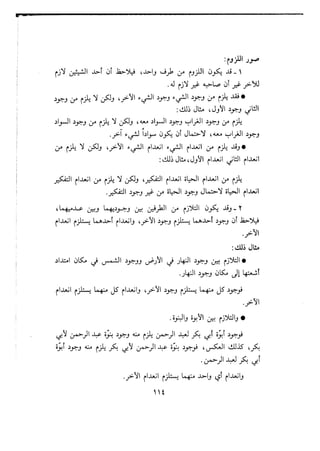 صور اللزوم:
١ - قد يكون اللزوم من طرف واحد، فيلاحظ أن أحد الشيئين لازم
للآخر غير أن صاحبه غير لازم له.
● فقد يلزم من وجود الشيء وجود الشيء الآخر، ولكن لا يلزم من وجود
الثاني وجود الأول، مثال ذلك:
يلزم من وجود الغراب وجود السواد معه، ولكن لا يلزم من وجود السواد
وجود الغراب معه، لاحتمال أن يكون السواد لشيء آخر.
● وقد يلزم من انعدام الشيء انعدام الشيء الآخر، ولكن لا يلزم من
انعدام الثاني انعدام الأول، مثال ذلك:
يلزم من انعدام الحياة انعدام التفكير، ولكن لا يلزم من انعدام التفكير
انعدام الحياة لاحتمال وجود الحياة من غير وجود التفكير.
٢ - وقد يكون التلازم من الطرفين بين وجوديهما وبين عدميهما،
فيلاحظ أن وجود أحدهما يستلزم وجود الآخر، وانعدام أحدهما يستلزم انعدام
الآخر.
مثال ذلك:
● التلازم بين وجود النهار في الأرض، ووجود الشمس في مكان امتداد
أشعتها إلى مكان وجود النهار.
فوجود كل منهما يستلزم وجود الآخر، وانعدام كل منهما يستلزم انعدام
الآخر.
● والتلازم بين الأبوة والبنوة.
فوجود أبوة أبي بكر لعبد الرحمن يلزم منه وجود بنوة عبد الرحمن لأبي
بكر، وكذلك العكس، فوجود بنوة عبد الرحمن لأبي بكر يلزم منه وجود أبوة
أبي بكر لعبد الرحمن.
وانعدام أي واحد منهما يستلزم انعدام الآخر.
١١٤